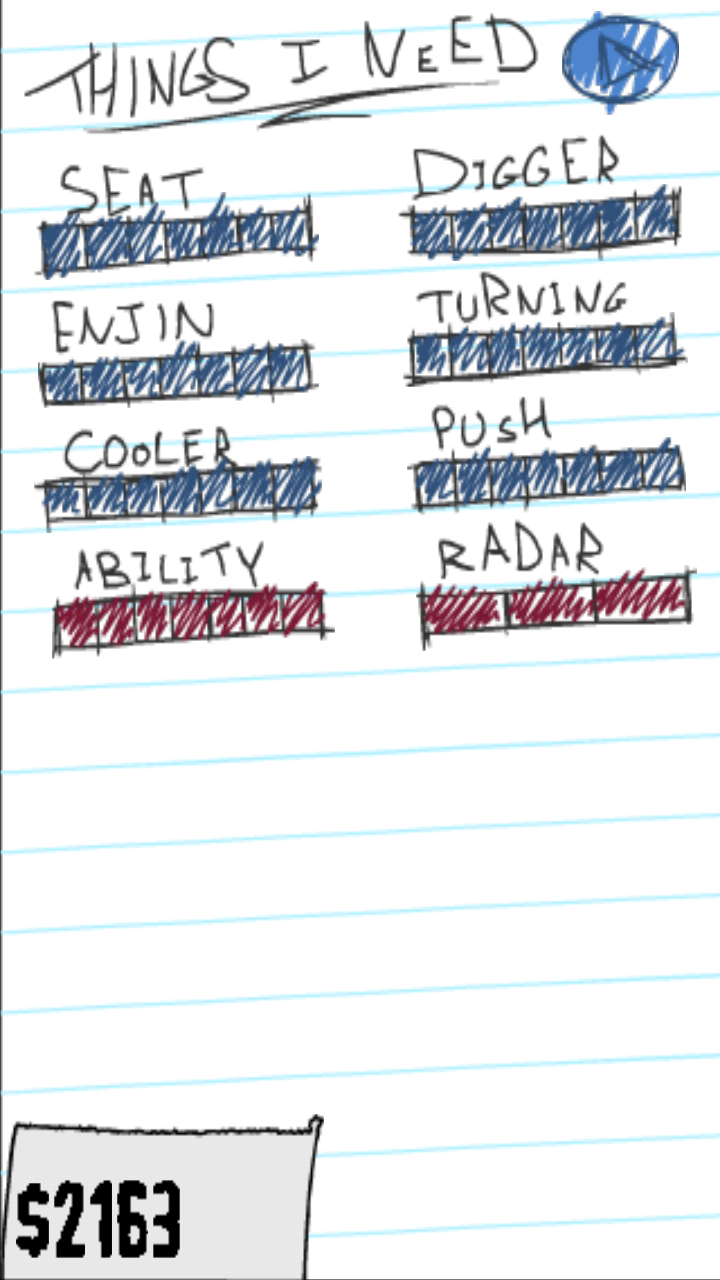 THINGS I NEED
SEAT
DIGGER
ENJIN
TURNING
COOLER
PUSH
ABILITY
RADAR
$2163